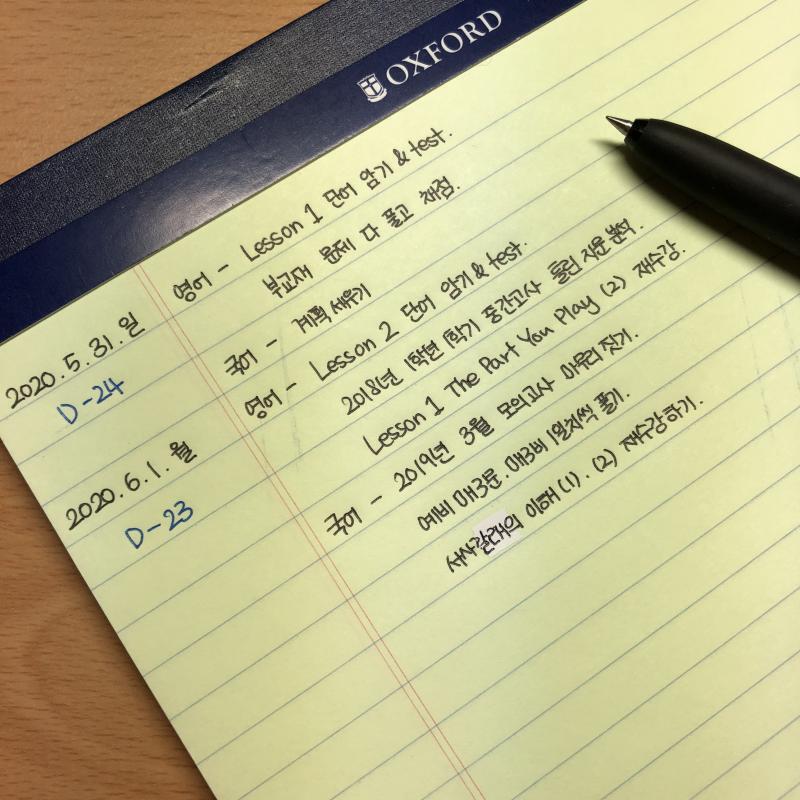 OXFORD
2020.5.31.일 영어 - Lesson 1 단어 암기 & test.
부교재 문제 다 풀고 채점.
D-24 국어 - 계획 세우기
2020.6.1.월 영어 - Lesson 2 단어 암기 & test.
2018년 1학년 1학기 중간고사 틀린 지문 분석.
Lesson 1 The Part You Play (2) 재수강.
D-23 국어 - 2019년 3월 모의고사 마무리 짓기.
예비 매3문. 매3비 1일치씩 풀기.
서사갈래의 이해 (1). (2) 재수강하기.